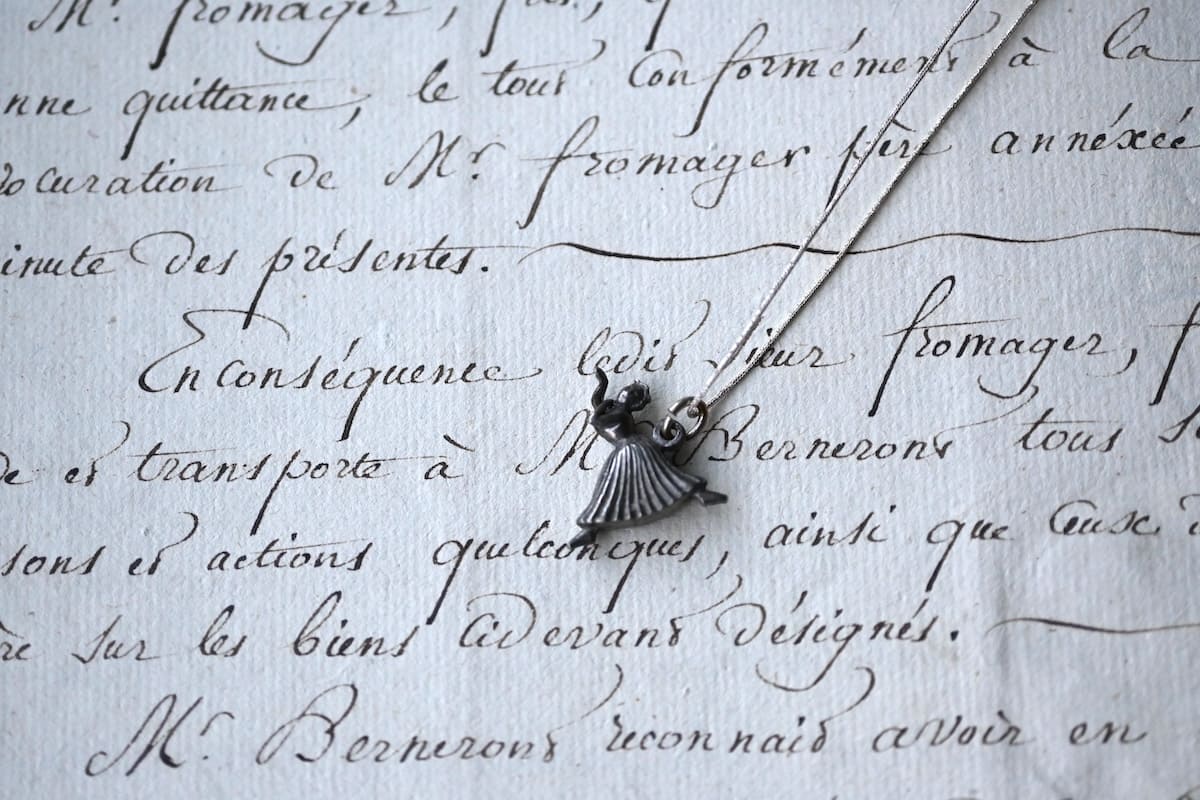 Mr. fromager,
nne quittance, le tout conformément à la
ocuration de Mr. fromager père annéxée
inute des présentes.
En conséquence ledit Sieur fromager,
de et transporte à M Berneront tous
sons et actions quelconques, ainsi que ceux
re sur les biens cidevant désignés.
Mr. Berneront reconnait avoir en